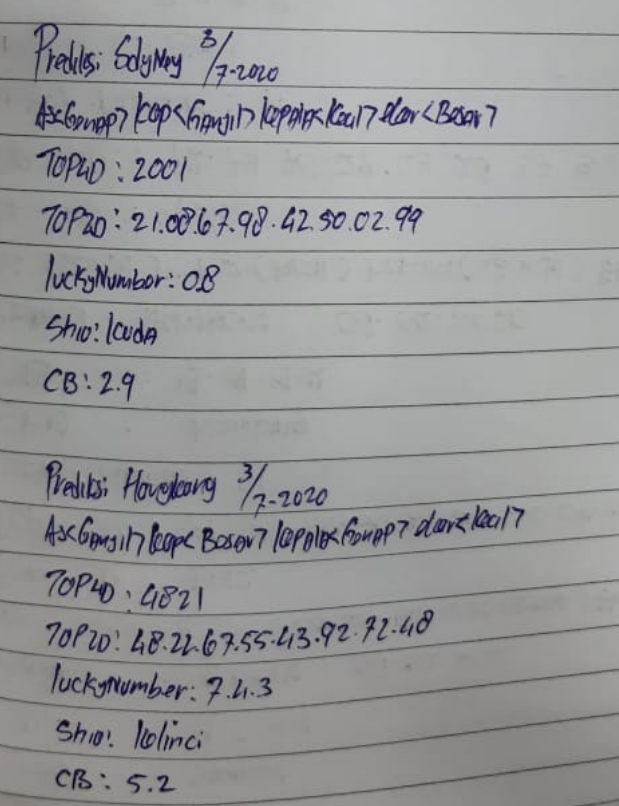 Prediksi SdyNey 3/7-2020
As<Genap> kop<Ganjil> kepala<kecil> ekor<Besar>
TOP4D : 2001
TOP2D : 21.08.67.98.42.50.02.99
luckyNumber : 0.8
Shio : kudA
CB : 2.9
Prediksi Hongkong 3/7-2020
As<Ganjil> kop<Besar> kepala<Genap> ekor<kecil>
TOP4D : 4821
TOP2D : 48.22.67.55.43.92.72.48
luckyNumber : 7.4.3
Shio : kelinci
CB : 5.2